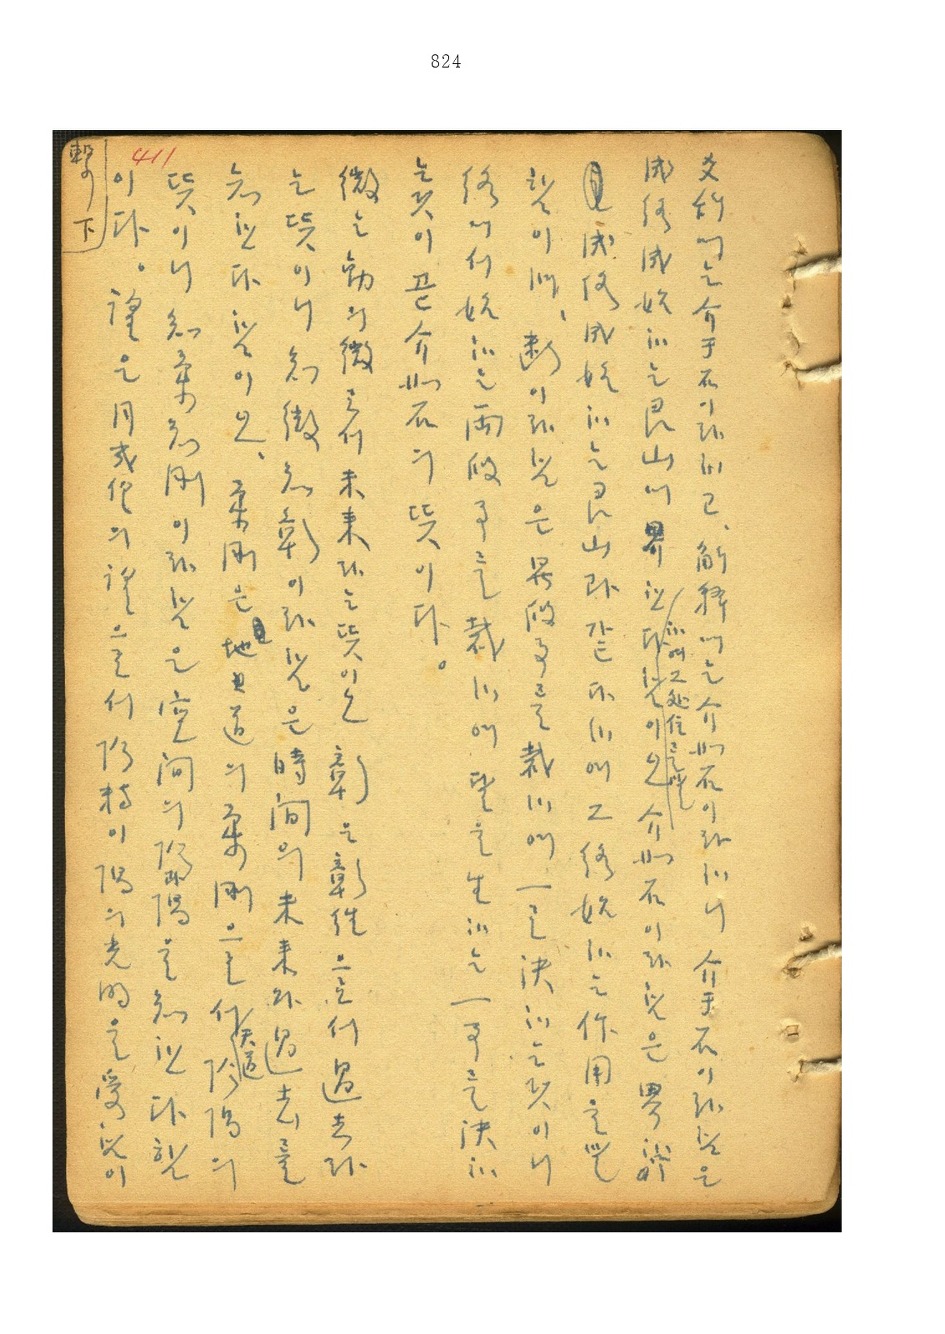 824
繫下
411
爻辭에는 介于石이라 하고、解釋에는 介如石이라 하니 介于石이라 함은
成終成始하는 艮山에 界한다 함이오 介如石이라 함은 界
하여 그 处位를
成終成始하는 艮山과 같다 하여 그 終始하는 作用을
함이며、斷이라 함은 段事를 裁하여 一로 決하는 것이니
終에서 始하는 兩段事를 裁하여 또 生하는 一事를 決하
는 것이 곧 介如石의 뜻이다。
微는 幼의 微로서 未來라는 뜻이오 彰은 彰往으로서 過去라
는 뜻이니 知微知彰이라 함은 時間의 未來와 過去를
知한다 함이오、柔剛은 地道의 柔剛으로서 天道 陰陽의
뜻이니 知柔知剛이라 함은 空間의 陰陽을 知한다 함
이다。望은 月幾望의 望으로서 陰 이 陽의 光明을 受함이